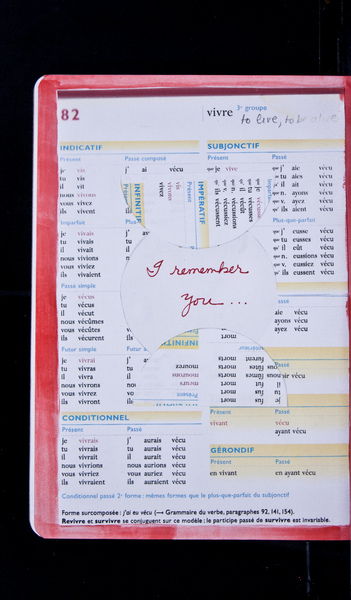 82
vivre 3e groupe
to live, to be alive
INDICATIF
SUBJONCTIF
Présent
Passé composé
Présent
Passé
je vis
j' ai vécu
que je vive
que j' aie vécu
tu vis
que tu aies vécu
il vit
qu' il ait vécu
nous vivons
que n. ayons vécu
vous vivez
que v. ayez vécu
ils vivent
qu' ils aient vécu
INFINITIF
IMPÉRATIF
Présent
vis
vivons
vivez
que je vécusse
que tu vécusses
qu' il vécût
que n. vécussions
que v. vécussiez
qu' ils vécussent
Imparfait
Plus-que-parfait
je vivais
que j' eusse vécu
tu vivais
que tu eusses vécu
il vivait
qu' il eût vécu
nous vivions
que n. eussions vécu
vous viviez
que v. eussiez vécu
ils vivaient
qu' ils eussent vécu
I remember
you...
Passé simple
je vécus
aie vécu
tu vécus
ayons vécu
il vécut
ayez vécu
nous vécûmes
vous vécûtes
ils vécurent
Futur simple
INFINITIF
je vivrai
tu vivras
il vivra
nous vivrons
vous vivrez
ils vivront
meurs
mourons
mourez
Présent
furent morts
fûtes morts
il fut mort
CONDITIONNEL
Présent
Passé
Présent
Passé
je vivrais
j' aurais vécu
vivant
vécu
tu vivrais
tu aurais vécu
ayant vécu
il vivrait
il aurait vécu
nous vivrions
nous aurions vécu
GÉRONDIF
vous vivriez
vous auriez vécu
Présent
Passé
ils vivraient
ils auraient vécu
en vivant
en ayant vécu
Conditionnel passé 2e forme : mêmes formes que le plus-que-parfait du subjonctif
Forme surcomposée : j'ai eu vécu (→ Grammaire du verbe, paragraphes 92, 141, 154).
Revivre et survivre se conjuguent sur ce modèle : le participe passé de survivre est invariable.